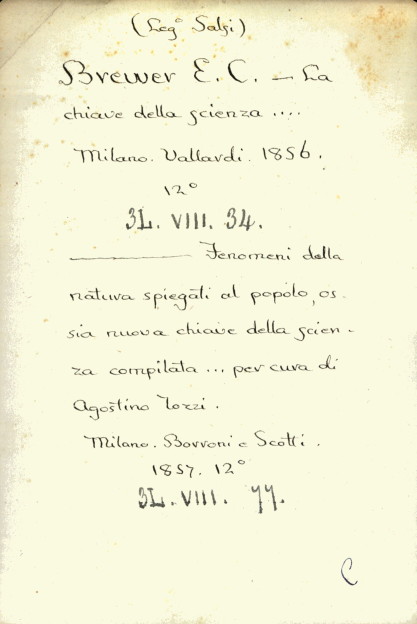 (Leg° Salfi)
Brewer E. C. — La
chiave della scienza ....
Milano. Vallardi. 1856.
12°
3L. VIII. 34.
——— Fenomeni della
natura spiegati al popolo, os-
sia nuova chiave della scien-
za compilata ... per cura di
Agostino Tozzi.
Milano. Borroni e Scotti.
1857. 12°
3L. VIII. 77.
C